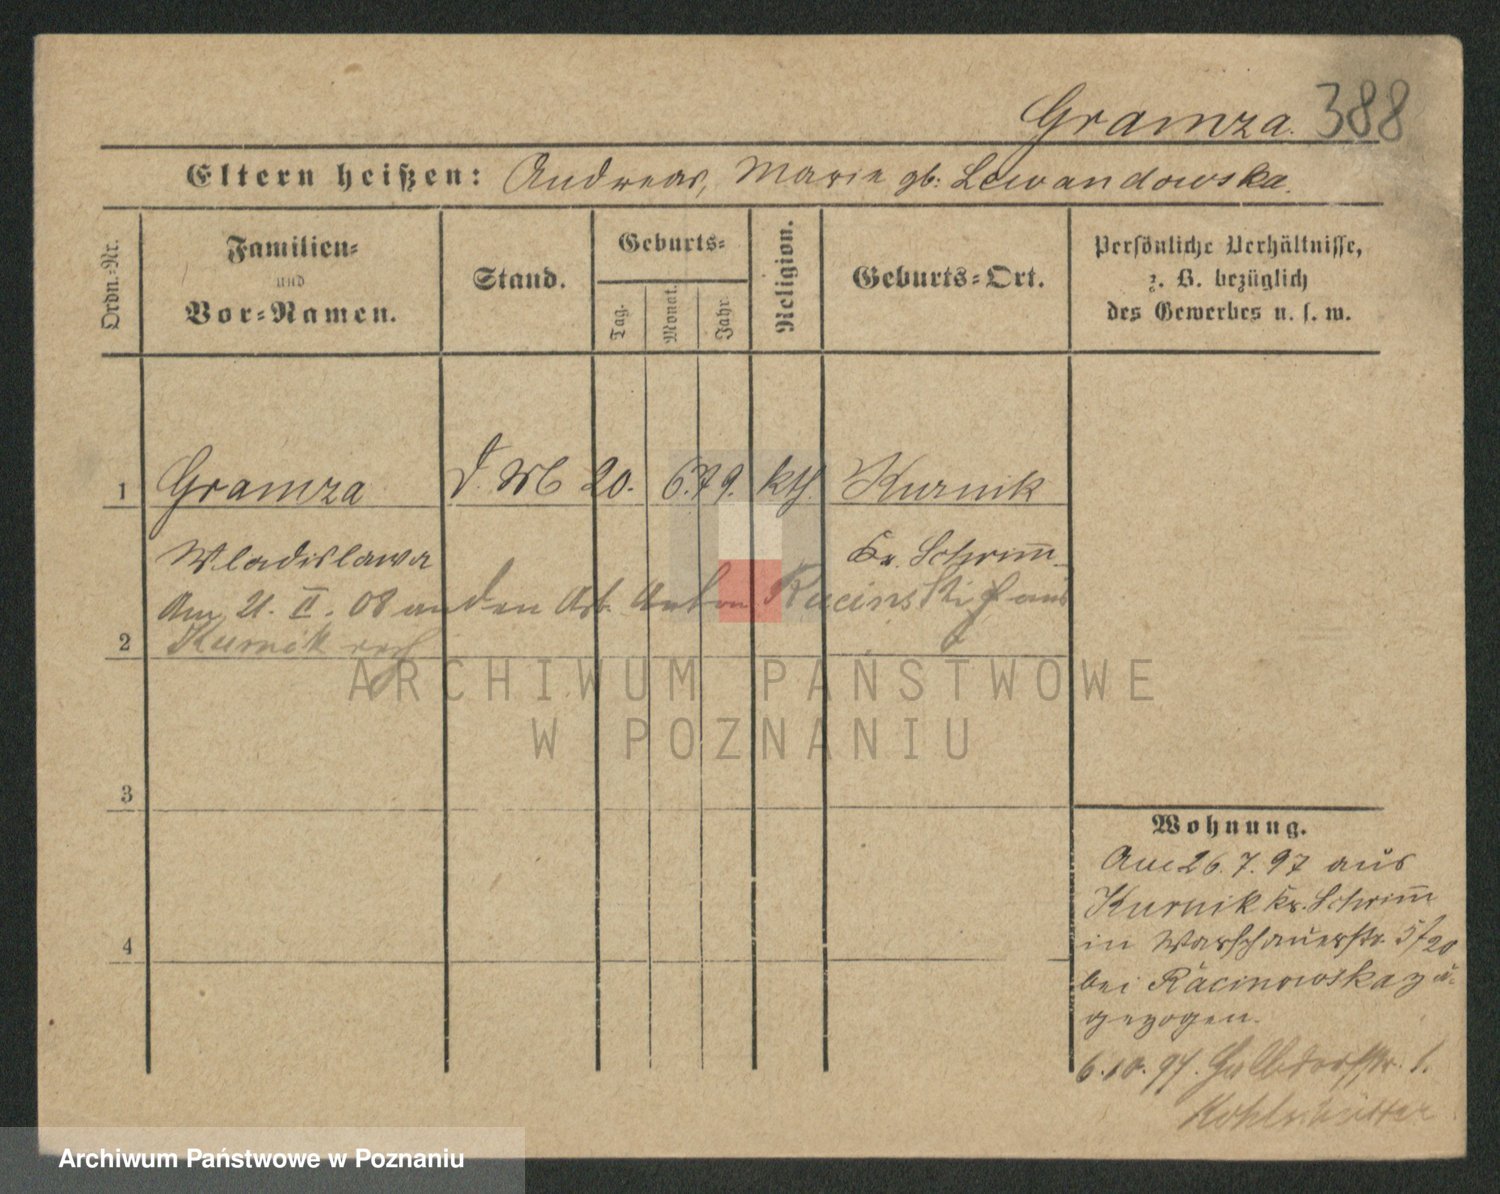 Gramza. 388
Eltern heißen: Andreas, Marie gb: Lewandowska.
Ordn.-Nr.
Familien-
und
Vor-Namen.
Stand.
Geburts-
Tag.
Monat.
Jahr
Religion.
Geburts-Ort.
Persönliche Verhältnisse,
z. B. bezüglich
des Gewerbes u. s. w.
1 Gramza d. M 20. 6. 79. kth. Kurnik
Wladislawa Kr. Schrim̅
Am 21. II. 08 an den Arb. Anton Racinski aus
2 Kurnik
ARCHIWUM PAŃSTWOWE
W POZNANIU
3
4
Wohnung.
Am 26. 7. 97 aus
Kurnik Kr. Schrim̅
in Warschauerstr. 5/20
bei Racinowska zu-
gezogen.
6. 10. 97. str. 1.
Archiwum Państwowe w Poznaniu